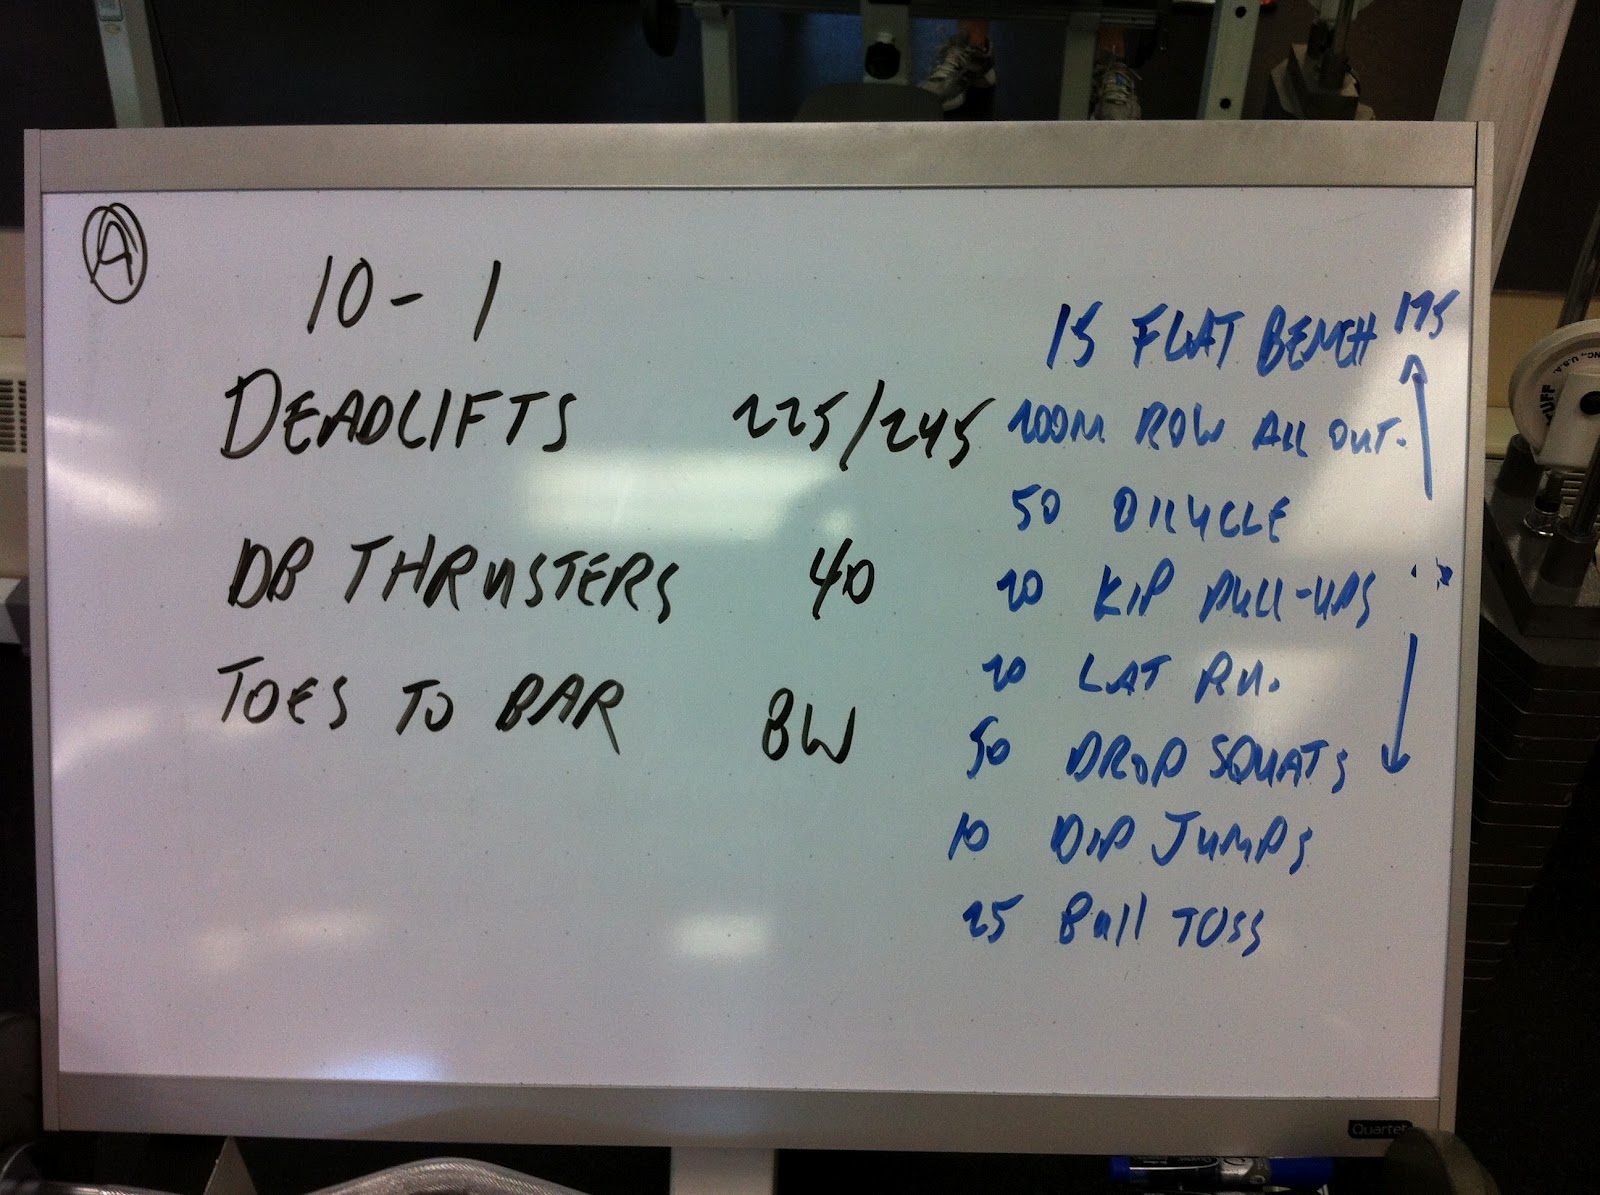 A
10 - 1
DEADLIFTS 225/245
DB THRUSTERS 40
TOES TO BAR BW
15 FLAT BENCH
200M ROW ALL OUT.
50
20 KIP PULL-UPS
20 LAT RU.
50 DROP SQUATS
10 DIP JUMPS
25 Ball TOSS
Quartet